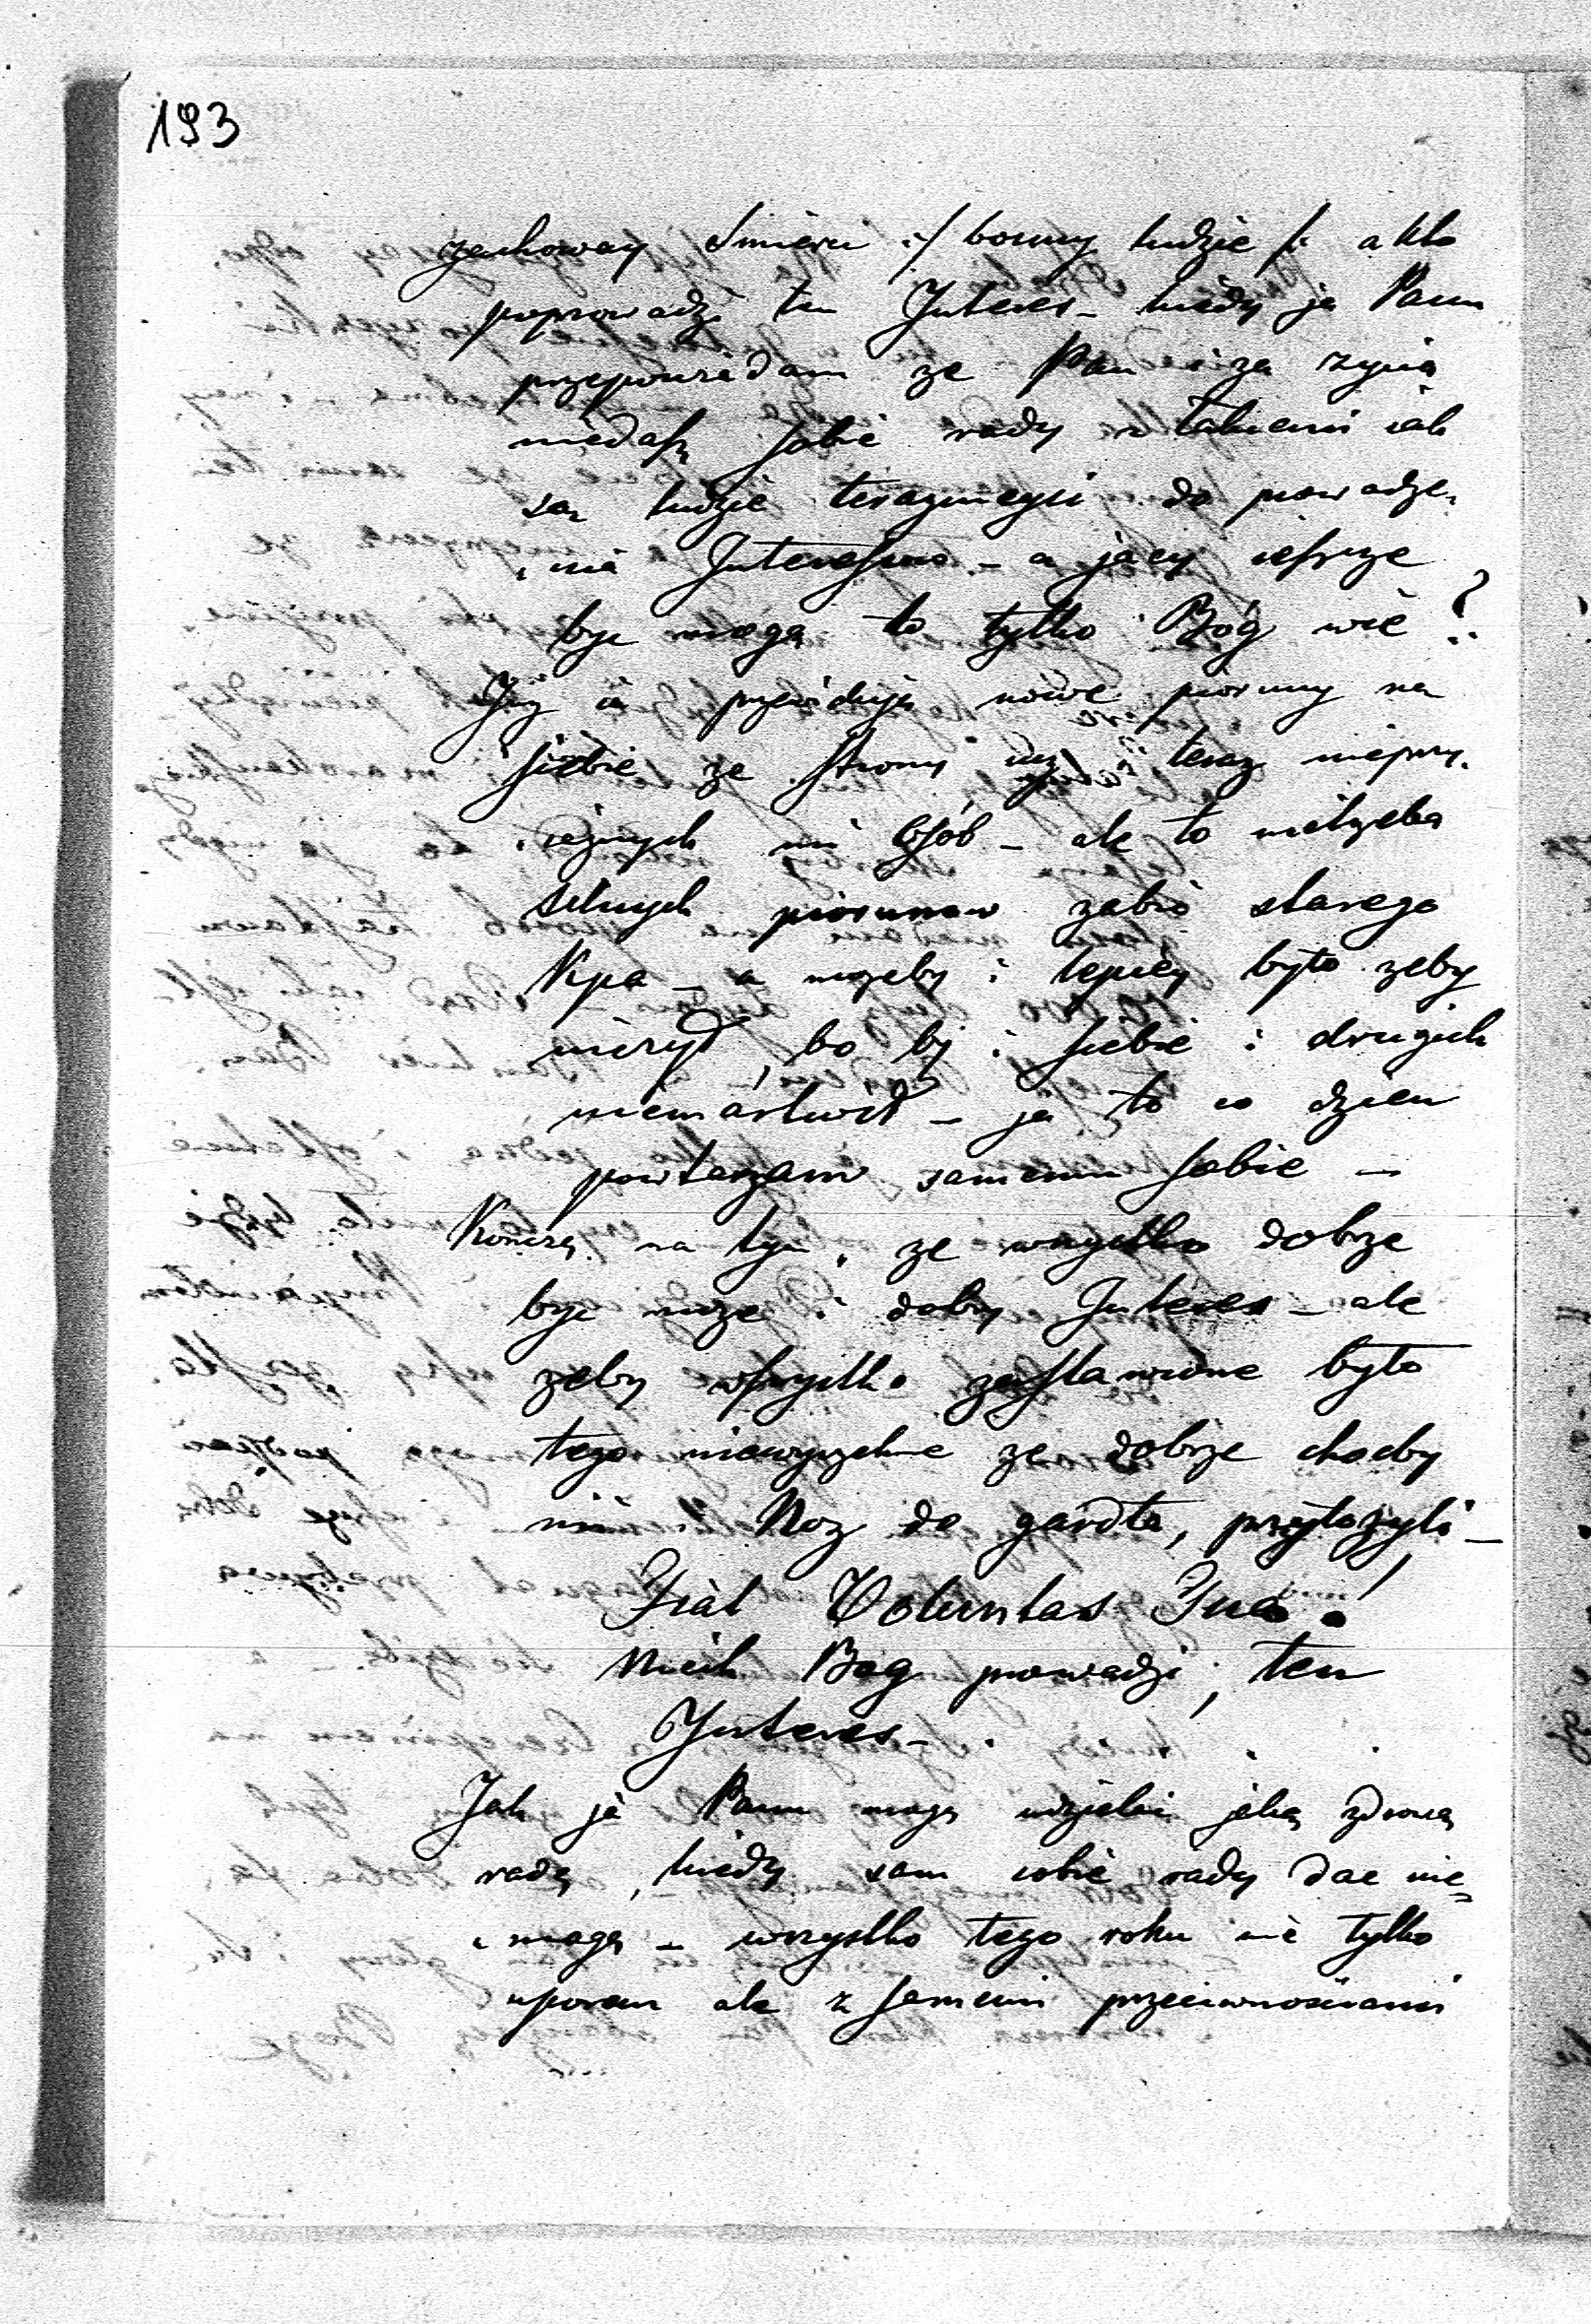 193
zachoway Smierci :/ bosmy ludzie /: a kto
poprowadzi ten Interes _ kiedy ja Panu
przepowiadam ze Pan za zycia
niedasz sobie rady z takiemi iak
są ludzie teraznieysi do prowadze,
,nia Interessow _ a jacy ieszcze
byc mogą to tylko Bóg wié ?
Juz ia przewiduję nowe pioruny na
siebie ze strony teraz nieprzy,
,iaznych mi Osób _ ale to nietrzeba
silnych piorunow zabić starego
Kpa _ a mozeby i lepiey było zeby
niezył, bo by i siebie i drugich
niemartwił _ ja to co dzien
powtarzam samemu sobie _
Konczę na tym, ze wszystko dobrze
byc moze i dobry Interes _ ale
zeby wszystko zastawione było
tego niewyrzeknę ze dobrze chocby
mi Noz do gardła, przyłozyli _
Fiat Voluntas Tua !
Niech Bog prowadzi, ten
Interes _
Jak ja Panu mogę udzielić jaką zdrową
radę, kiedy sam sobie rady dac nie
,mogę _ wszystko tego roku nie tylko
uporem ale z samemi przeciwnosciami